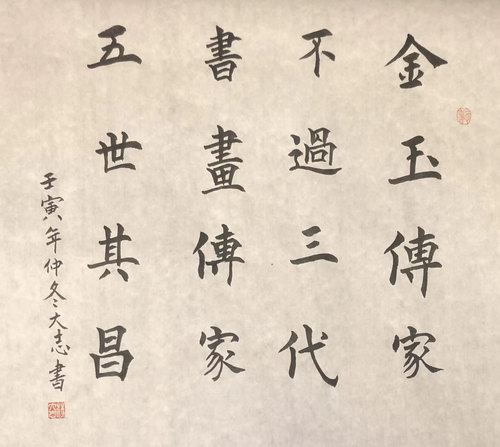 金玉傳家
不過三代
書畫傳家
五世其昌
壬寅年仲冬大志書